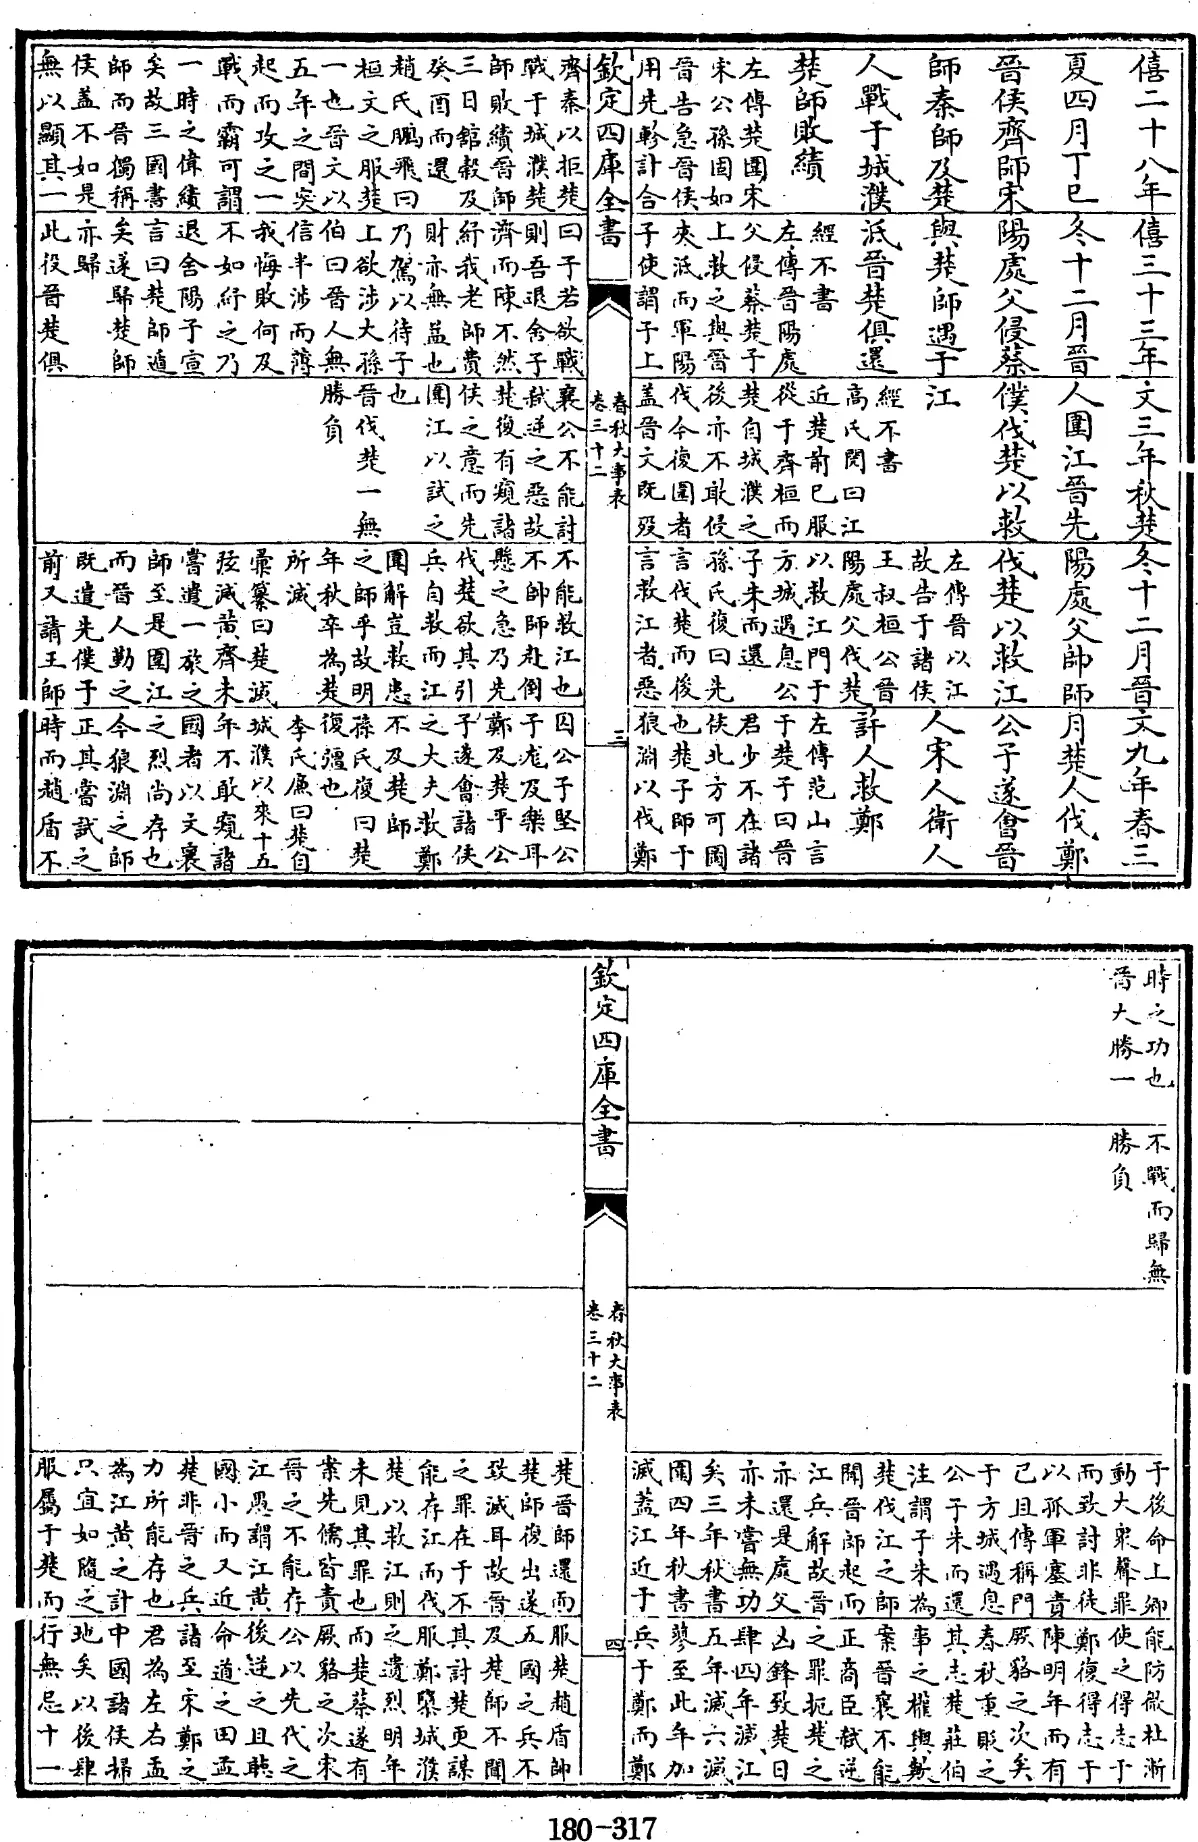 僖二十八年
夏四月丁巳
晉侯齊師宋
師秦師及楚
人戰于城濮
楚師敗績
左傳楚圍宋
宋公孫固如
晉告急晉侯
用先軫計合
齊秦以拒楚
戰于城濮楚
師敗績晉師
三日館穀及
癸酉而還
趙氏鵬飛曰
桓文之服楚
一也晉文以
五年之間突
起而攻之一
戰而霸可謂
一時之偉績
矣故三國書
師而晉獨稱
侯蓋不如是
無以顯其一
僖三十三年
冬十二月晉
陽處父侵蔡
與楚師遇于
泜晉楚俱還
經不書
左傳晉陽處
父侵蔡楚子
上救之與晉
夾泜而軍陽
子使謂子上
曰子若欲戰
則吾退舍子
濟而陳不然
紓我老師費
財亦無益也
乃駕以待子
上欲涉大孫
伯曰晉人無
信半涉而薄
我悔敗何及
不如紓之乃
退舍陽子宣
言曰楚師遁
矣遂歸楚師
亦歸
此役晉楚俱
文三年秋楚
人圍江晉先
僕伐楚以救
江
經不書
高氏閌曰江
近楚前已服
從于齊桓而
楚自城濮之
後亦不敢侵
伐今復圍者
蓋晉文既歿
襄公不能討
弒逆之惡故
楚復有窺諸
侯之意而先
圍江以試之
也
晉伐楚一無
勝負
冬十二月晉
陽處父帥師
伐楚以救江
左傳晉以江
故告于諸侯
王叔桓公晉
陽處父伐楚
以救江門于
方城遇息公
子朱而還
孫氏復曰先
言伐楚而後
言救江者惡
不能救江也
不帥師赴倒
懸之急乃先
伐楚欲其引
兵自救而江
圍解豈救患
之師乎故明
年秋卒為楚
所滅
彙纂曰楚滅
弦滅黃齊未
嘗遣一旅之
師至是圍江
而晉人勤之
既遣先僕于
前又請王師
文九年春三
月楚人伐鄭
公子遂會晉
人宋人衛人
許人救鄭
左傳范山言
于楚子曰晉
君少不在諸
侯北方可圖
也楚子師于
狼淵以伐鄭
囚公子堅公
子尨及樂耳
鄭及楚平公
子遂會諸侯
之大夫救鄭
不及楚師
孫氏復曰楚
復彊也
李氏廉曰楚自
城濮以來十五
年不敢窺諸
國者以文襄
之烈尚存也
今狼淵之師
正其嘗試之
時而趙盾不
欽定四庫全書
春秋大事表
卷三十二
三
時之功也
晉大勝一
不戰而歸無
勝負
于後命上卿
動大衆聲罪
而致討非徒
以孤軍塞責
已且傳稱門
于方城遇息
公子朱而還
注謂子朱為
楚伐江之師
聞晉師起而
江兵解故晉
亦還是處父
亦未嘗無功
矣三年秋書
圍四年秋書
滅蓋江近于
楚晉師還而
楚師復出遂
致滅耳故晉
之罪在于不
能存江而伐
楚以救江則
未見其罪也
案先儒皆責
晉之不能存
江愚謂江黃
國小而又近
楚非晉之兵
力所能存也
為江黃之計
只宜如隨之
服屬于楚而
能防微杜漸
使之得志于
鄭復得志于
陳明年而有
厥貉之次矣
春秋重貶之
其志楚莊伯
事之權輿歟
案晉襄不能
正商臣弒逆
之罪扼楚之
凶鋒致楚日
肆四年滅江
五年滅六滅
蓼至此年加
兵于鄭而鄭
服楚趙盾帥
五國之兵不
及楚師不聞
其討楚更謀
服鄭隳城濮
之遺烈明年
而楚蔡遂有
厥貉之次宋
公以先代之
後逆之且聽
命道之田孟
諸至宋鄭之
君為左右盂
中國諸侯掃
地矣以後肆
行無忌十一
欽定四庫全書
春秋大事表
卷三十二
四
180-317